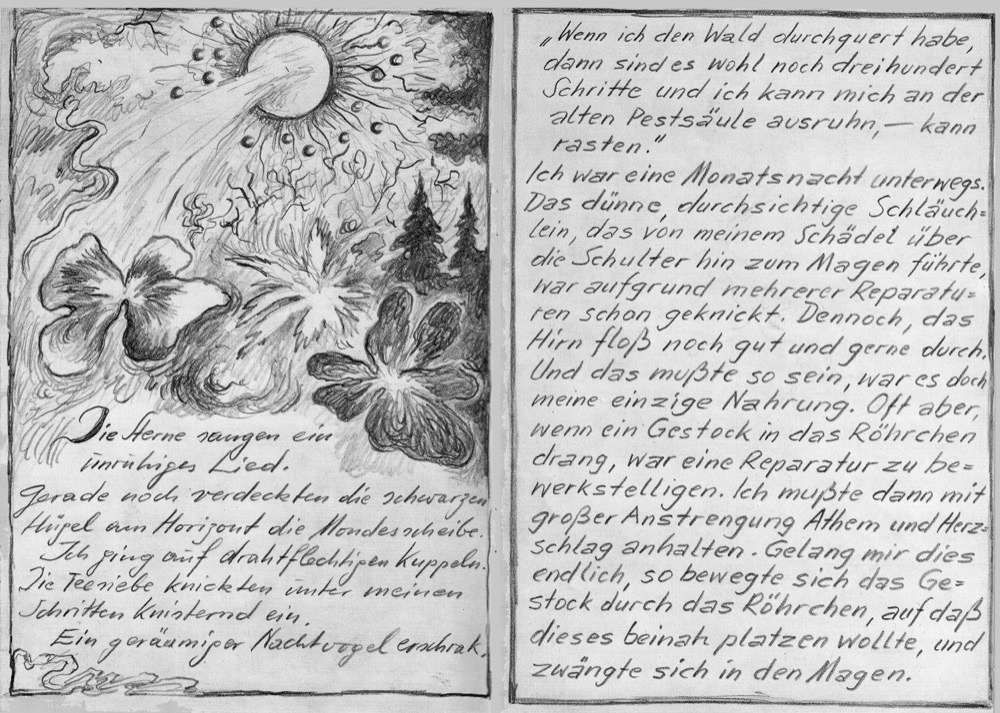 Die Sterne sangen ein
unruhiges Lied.
Gerade noch verdeckten die schwarzen
Hügel am Horizont die Mondesscheibe.
Ich ging auf drahtflechtigen Kuppeln.
Die Teesiebe knickten unter meinen
Schritten knisternd ein.
Ein geräumiger Nachtvogel erschrak.
„Wenn ich den Wald durchquert habe,
dann sind es wohl noch dreihundert
Schritte und ich kann mich an der
alten Pestsäule ausruhn, — kann
rasten."
Ich war eine Monatsnacht unterwegs.
Das dünne, durchsichtige Schläuch=
lein, das von meinem Schädel über
die Schulter hin zum Magen führte,
war aufgrund mehrerer Reparatu=
ren schon geknickt. Dennoch, das
Hirn floß noch gut und gerne durch.
Und das mußte so sein, war es doch
meine einzige Nahrung. Oft aber,
wenn ein Gestock in das Röhrchen
drang, war eine Reparatur zu be=
werkstelligen. Ich mußte dann mit
großer Anstrengung Athem und Herz=
schlag anhalten. Gelang mir dies
endlich, so bewegte sich das Ge=
stock durch das Röhrchen, auf daß
dieses beinah platzen wollte, und
zwängte sich in den Magen.